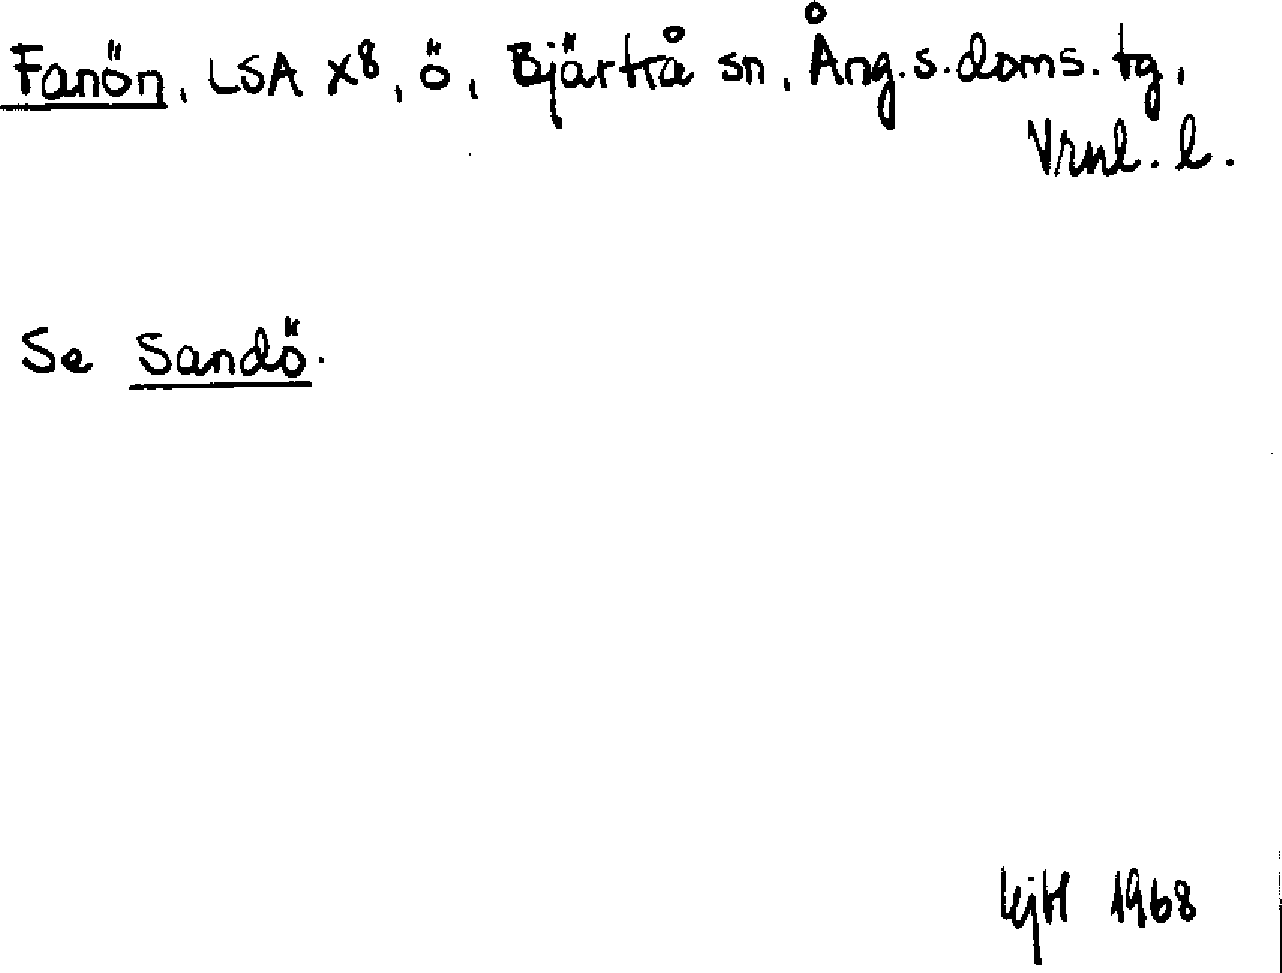 Fanön, LSA X8, ö, Bjärtrå sn, Ång.s.doms.tg,
Vrnl. l.
Se Sandö.
KjH 1968